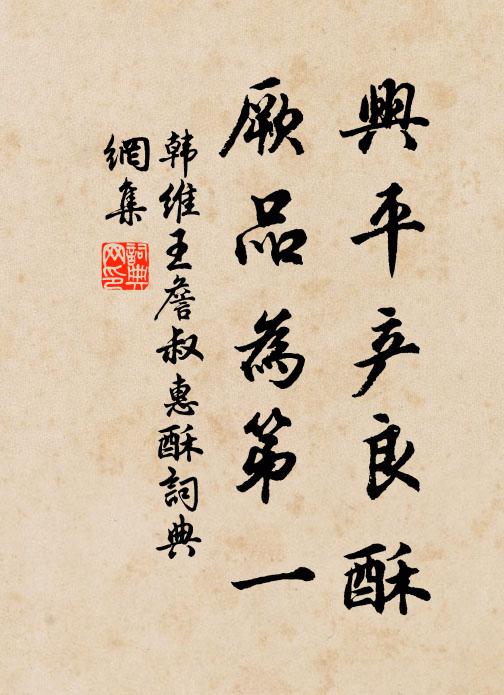 興平产良酥
厥品為第一
韩維王詹叔惠酥詞典
網集
詞典网印